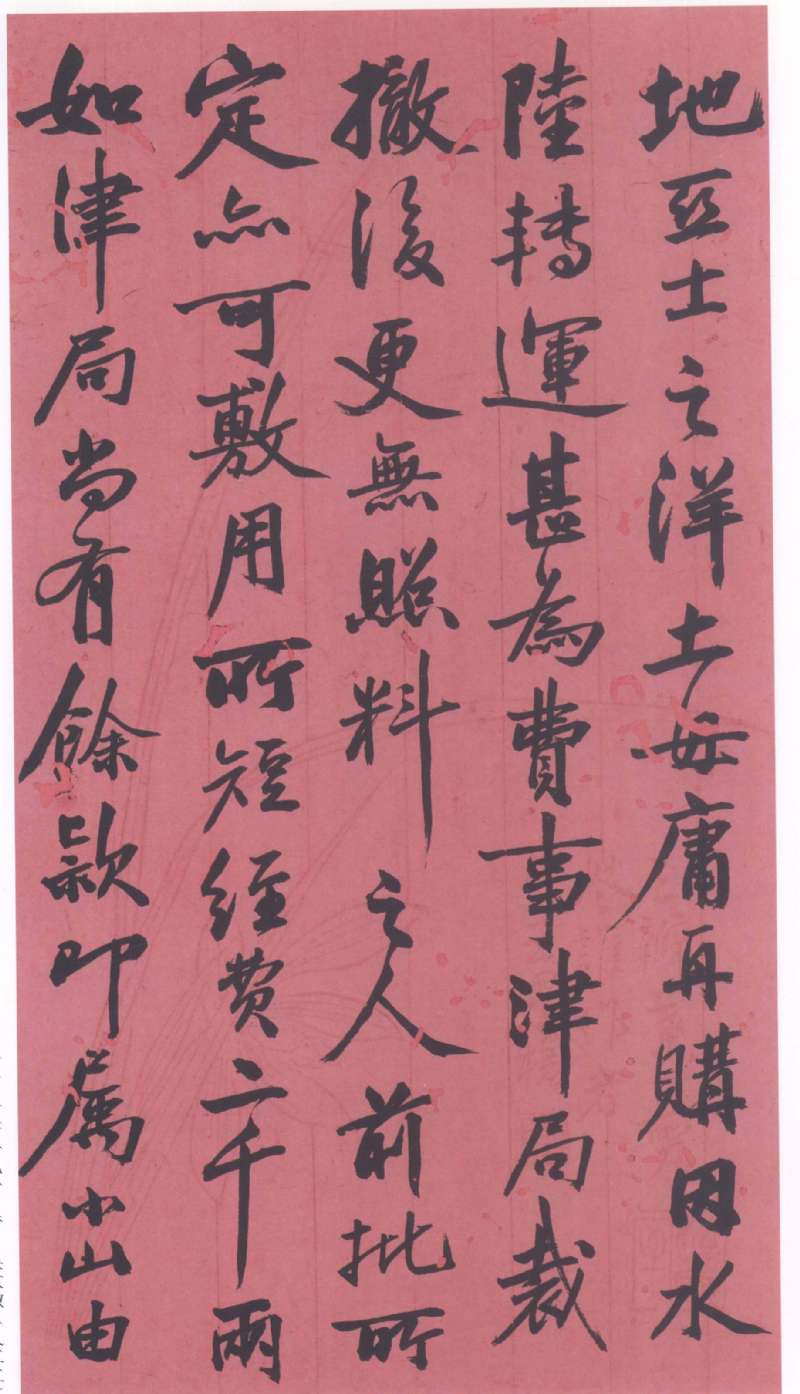 地亞士之洋土毋庸再購因水
陸轉運甚為費事津局裁
撤後更無照料之人前批所
定亦可敷用所短經費二千兩
如津局尚有餘款即屬小山由